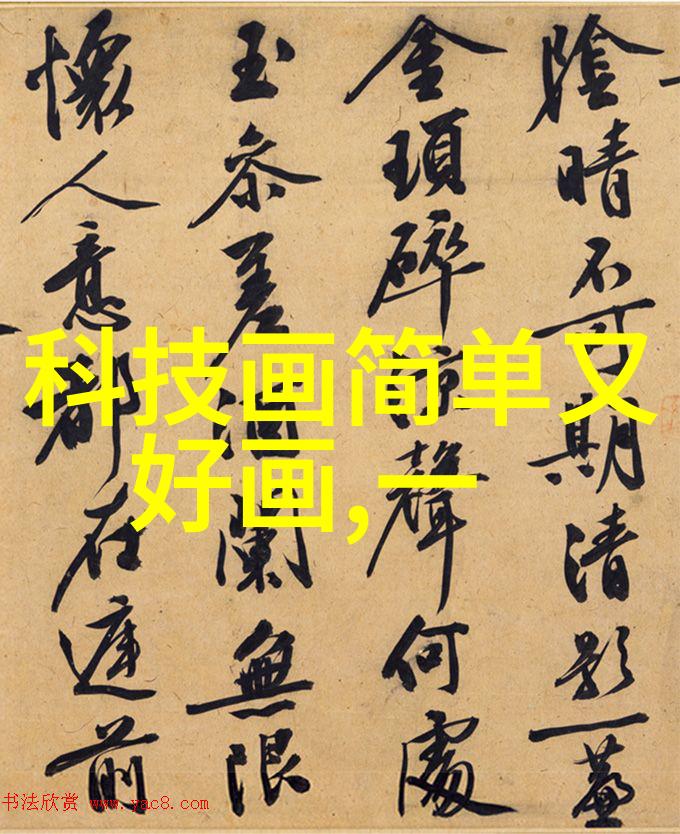 科技画简单又
好画,一
陰晴不可期清影一
金瑣碎聲何處
玉參差闌無限
懷人意都在前
书法欣赏 www.yac8.com